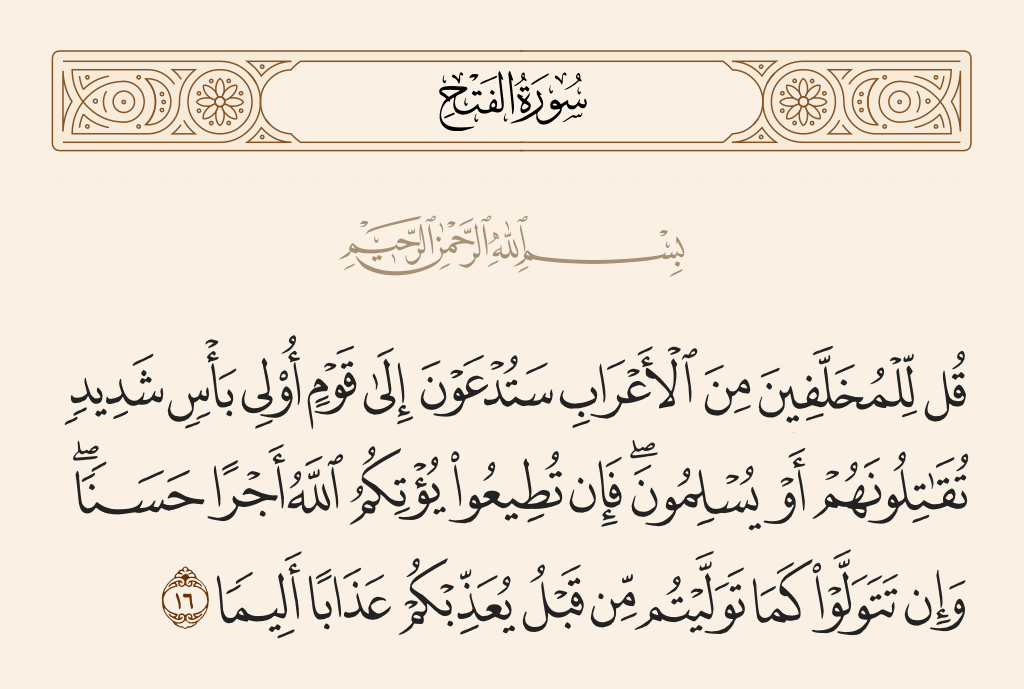 سُورَةُ الفَتْحِ
بِسْمِ ٱللَّهِ ٱلرَّحْمَٰنِ ٱلرَّحِيمِ
قُل لِّلْمُخَلَّفِينَ مِنَ ٱلْأَعْرَابِ سَتُدْعَوْنَ إِلَىٰ قَوْمٍ أُو۟لِى بَأْسٍ شَدِيدٍ
تُقَٰتِلُونَهُمْ أَوْ يُسْلِمُونَ ۖ فَإِن تُطِيعُوا۟ يُؤْتِكُمُ ٱللَّهُ أَجْرًا حَسَنًا ۖ
وَإِن تَتَوَلَّوْا۟ كَمَا تَوَلَّيْتُم مِّن قَبْلُ يُعَذِّبْكُمْ عَذَابًا أَلِيمًا ١٦